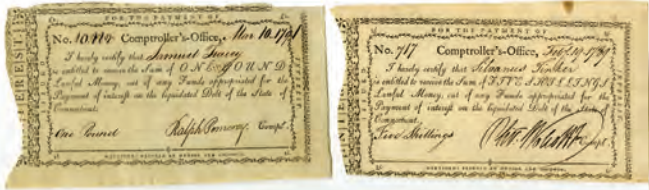 FOR THE PAYMENT OF
INTEREST
No. 10,414 Comptroller's-Office, Mar 10. 1791
I hereby certify that Samuel Tracy
is entitled to receive the Sum of ONE POUND
Lawful Money, out of any Funds appropriated for the
Payment of interest on the liquidated Debt of the State of
Connecticut.
One Pound Ralph Pomeroy Compt.
FOR THE PAYMENT OF
No. 717 Comptroller's-Office, Feb. 19 1789
I hereby certify that Silvanus Tinker
is entitled to receive the Sum of FIVE SHILLINGS
Lawful Money, out of any Funds appropriated for the
Payment of interest on the liquidated Debt of the State
Connecticut.
Five Shillings Oliv. Wolcott Jr Compt.